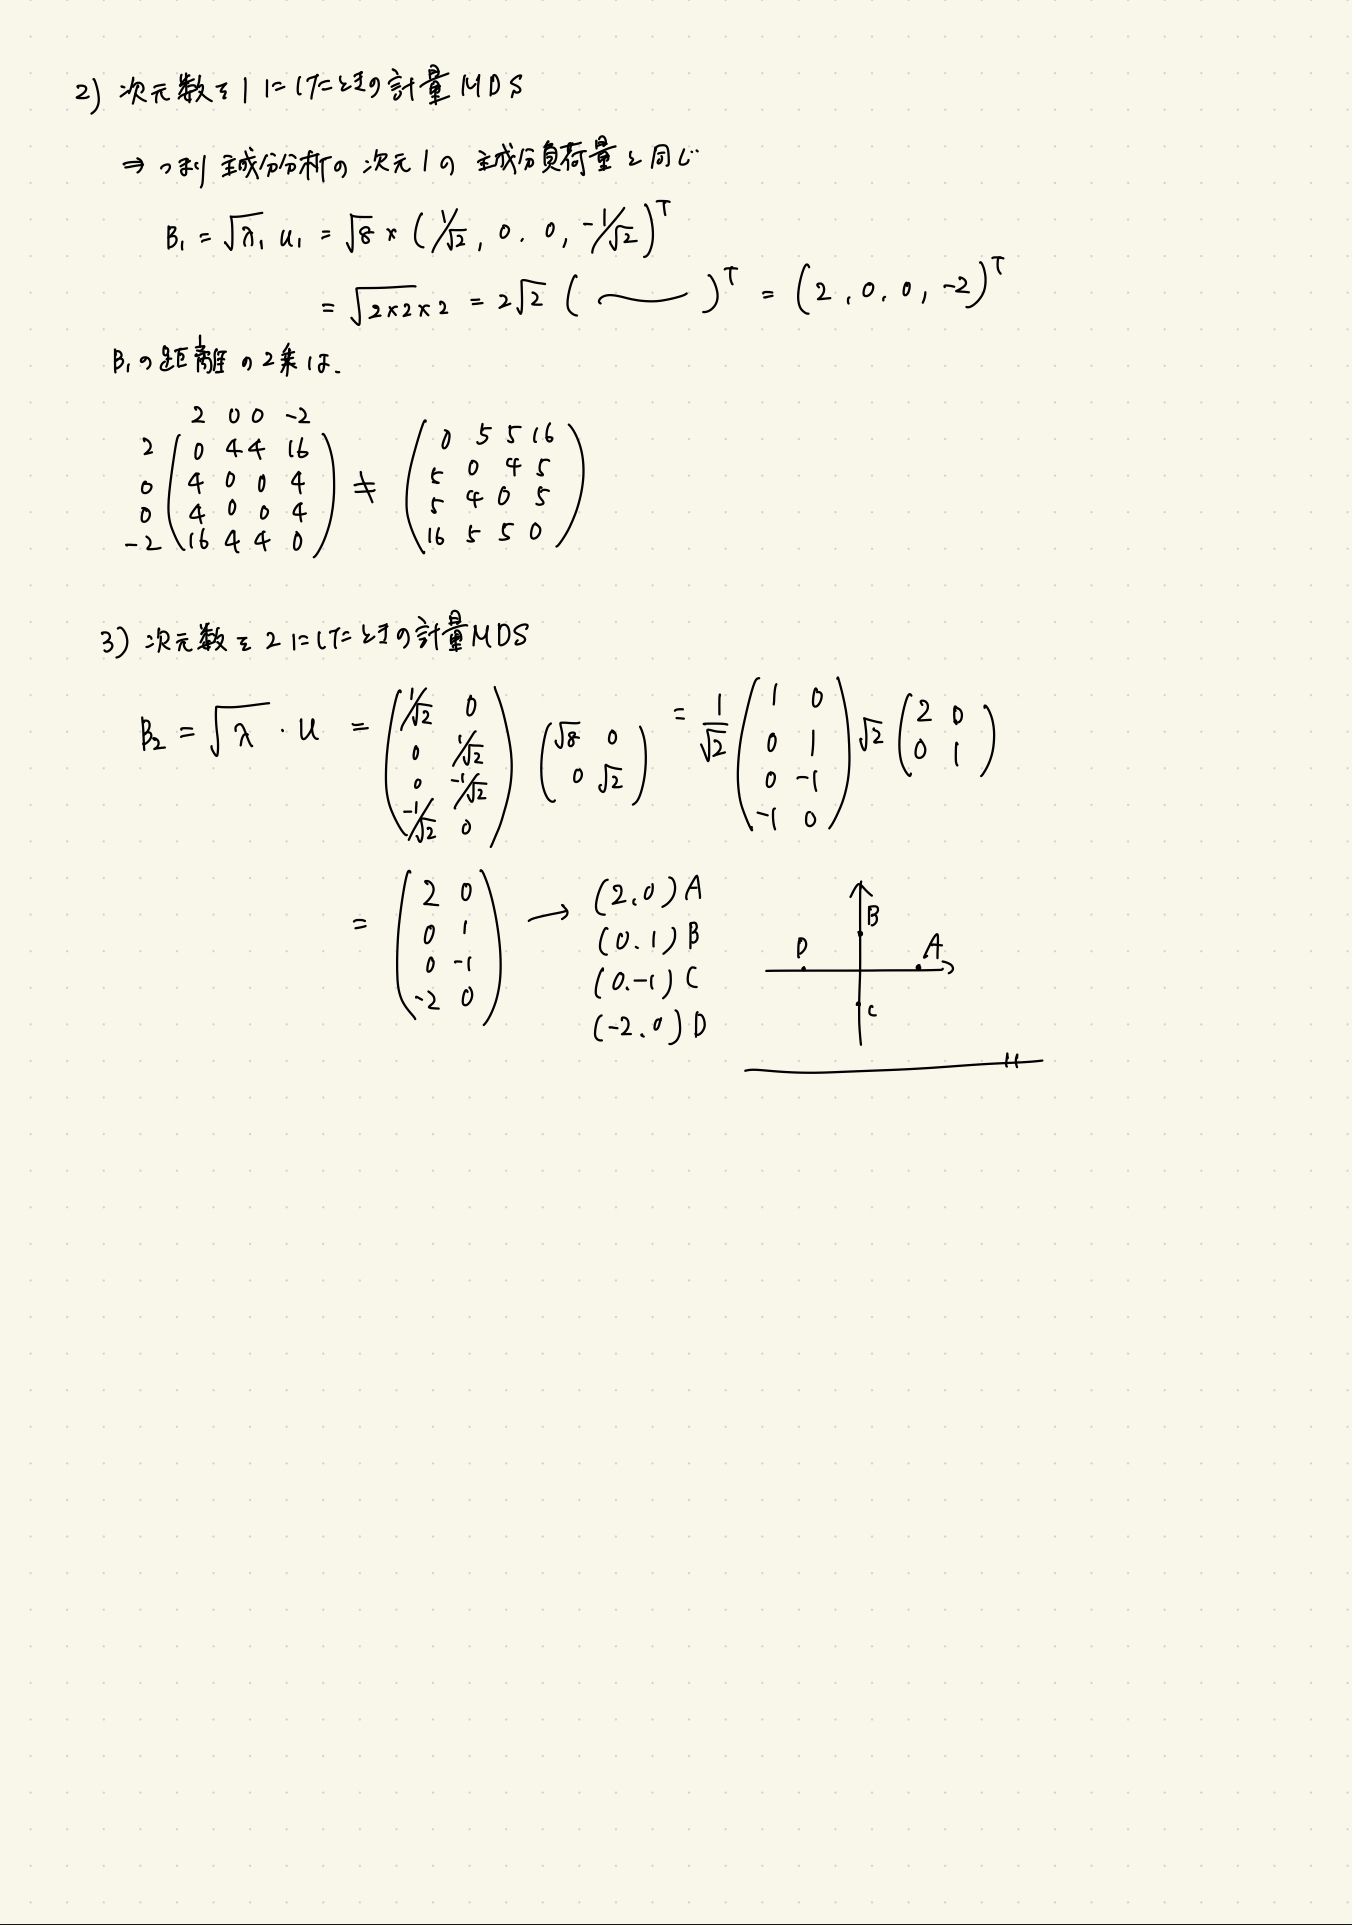 2) 次元数を1にしたときの計量MDS
⇒ つまり 主成分分析の 次元1の 主成分負荷量と同じ
B₁ = √λ₁ u₁ = √8 × (1/√2, 0. 0, -1/√2)ᵀ
= √2×2×2 = 2√2 ( )ᵀ = (2, 0. 0, -2)ᵀ
B₁の距離の2乗は.
2 0 0 -2
2 (0 4 4 16) (0 5 5 16)
0 (4 0 0 4) ≠ (5 0 4 5)
0 (4 0 0 4) (5 4 0 5)
-2 (16 4 4 0) (16 5 5 0)
3) 次元数を2にしたときの計量MDS
B₂ = √λ · U = (1/√2 0 0 1/√2 0 -1/√2 -1/√2 0) (√8 0 0 √2) = 1/√2 (1 0 0 1 0 -1 -1 0) √2 (2 0 0 1)
= (2 0 0 1 0 -1 -2 0) → (2.0) A
(0.1) B
(0.-1) C
(-2.0) D
B
D A
C